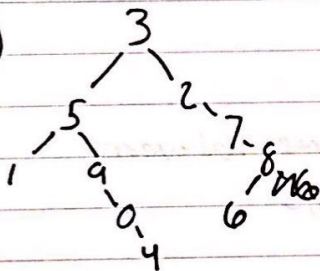 3
5 2
7
1 9 8
0 6
4